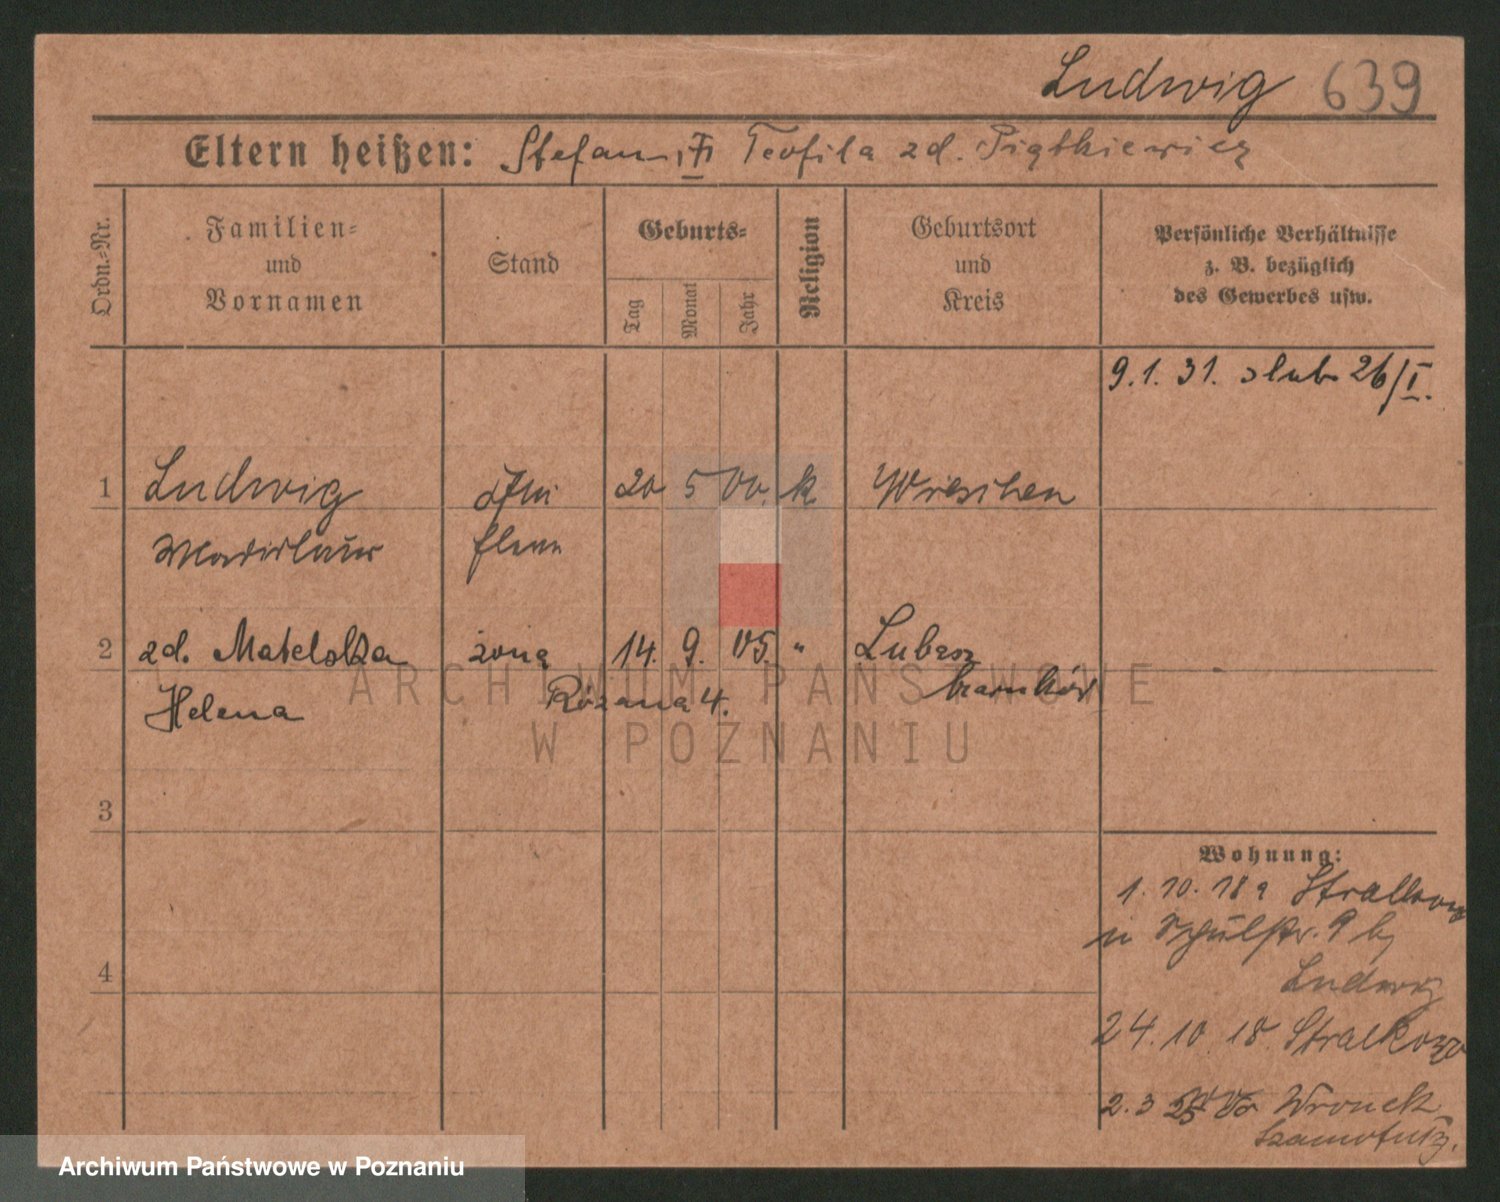 Ludwig 639
Eltern heißen: Stefan, Teofila zd. Piątkiewicz
Ordn.-Nr.
Familien-
und
Vornamen
Stand
Geburts-
Tag
Monat
Jahr
Religion
Geburtsort
und
Kreis
Persönliche Verhältnisse
z. B. bezüglich
des Gewerbes usw.
9.1.31. slub 26/I.
1 Ludwig 20 5 00. k Wreschen
Wladislaus
2 zd. Matelska żona 14. 9. 05. " Lubasz
Helena Różana 4. Czarnków
3
4
Wohnung:
1. 10. 18 Stralkowo
Schulstr. 9 b
Ludwig
24. 10 18 Stralkowo
2. 3 Wronek
Szamotuły.
ARCHIWUM PAŃSTWOWE
W POZNANIU
Archiwum Państwowe w Poznaniu